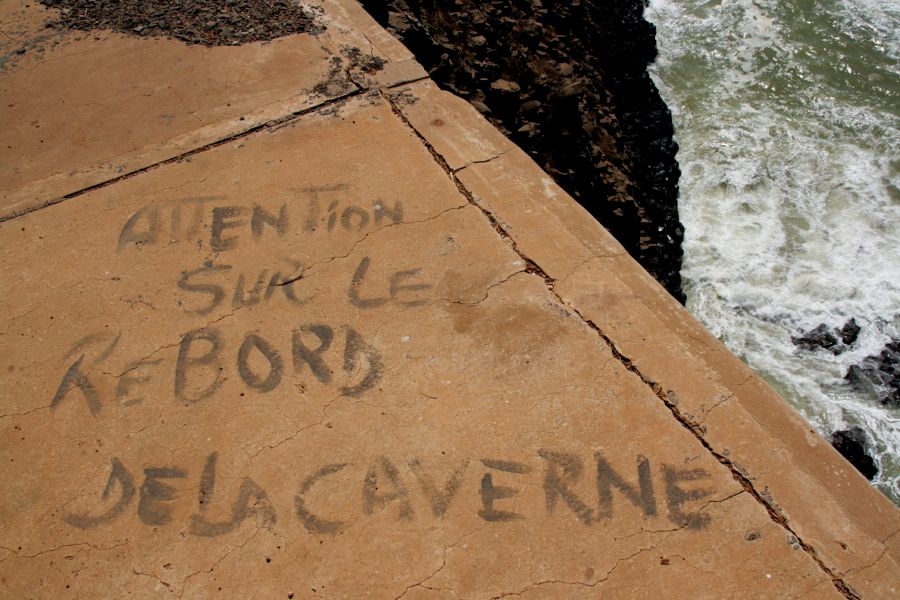 ATTENTION
SUR LE
REBORD
DE LA CAVERNE